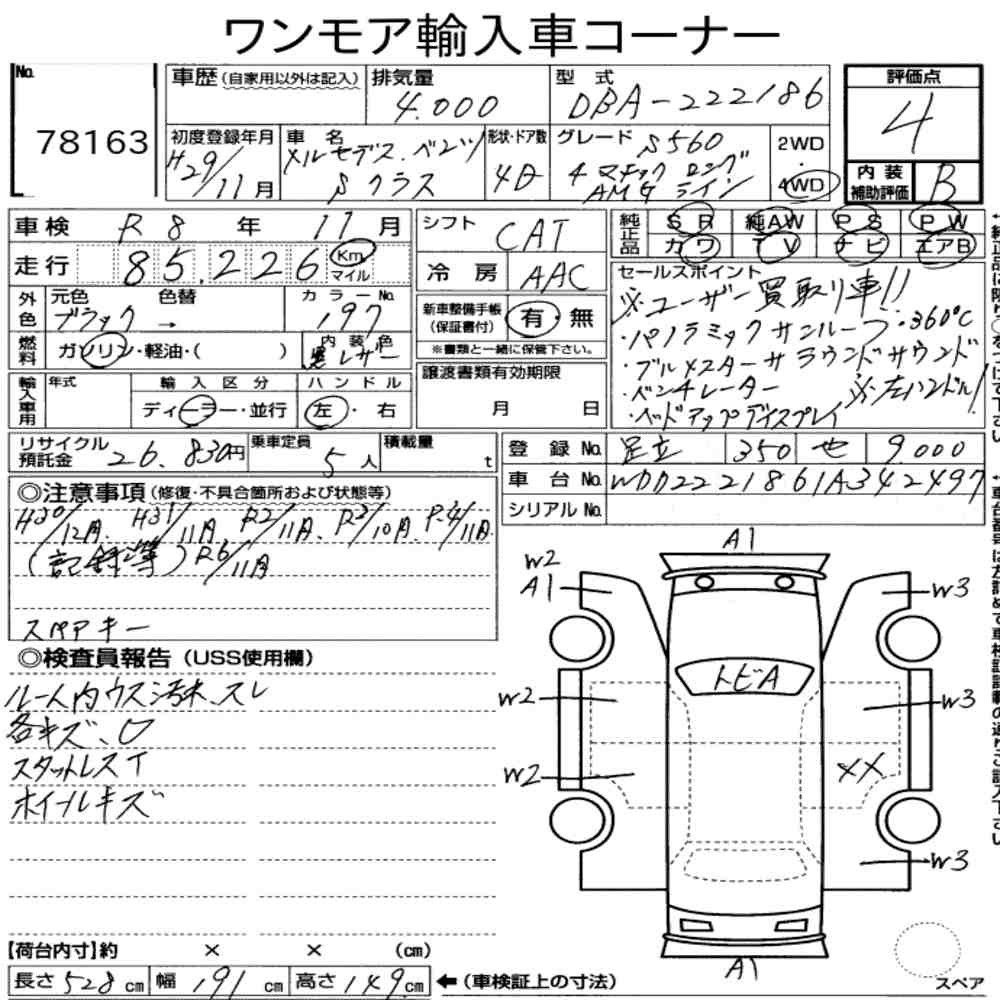 ワンモア輸入車コーナー
No.
78163
車歴(自家用以外は記入)
排気量
4.000
型式
DBA-222186
評価点
4
初度登録年月
H29/11月
車名
メルセデス.ベンツ
Sクラス
形状・ドア数
4D
グレード S560
4マチック ロング
AMGライン
2WD
4WD
内装
補助評価
B
車検 R8年 11月
走行 85.226 Km
マイル
シフト
CAT
冷房 AAC
純正品
SR 純AW PS PW
カワ TV ナビ エアB
外色
元色 色替
ブラック →
カラーNo.
197
新車整備手帳
(保証書付)
有・無
※書類と一緒に保管下さい。
セールスポイント
※ユーザー買取り車!!
・パノラミックサンルーフ・360℃
・ブルメスターサラウンドサウンド
・ベンチレーター ※左ハンドル!
・ヘッドアップディスプレイ
燃料
ガソリン・軽油・( )
内装色
黒レザー
輸入車用
年式
輸入区分
ディーラー・並行
ハンドル
左・右
譲渡書類有効期限
月 日
リサイクル
預託金 26.830円
乗車定員
5人
積載量
t
登録No. 足立 350 せ 9.000
車台No. WDD2221861A342497
シリアルNo.
◎注意事項(修復・不具合箇所および状態等)
H30/12月. H31/11月 R2/11月. R3/10月. R4/11月.
(記録簿) R6/11月
スペアキー
◎検査員報告(USS使用欄)
ルーム内ウス汚れ.スレ
各キズ、凹
スタットレスT
ホイールキズ
A1
W2
A1
W3
トビA
W2
W3
W2
XX
W3
A1
【荷台内寸】約 × × (cm)
長さ528cm 幅 191cm 高さ149cm ←(車検証上の寸法)
スペア